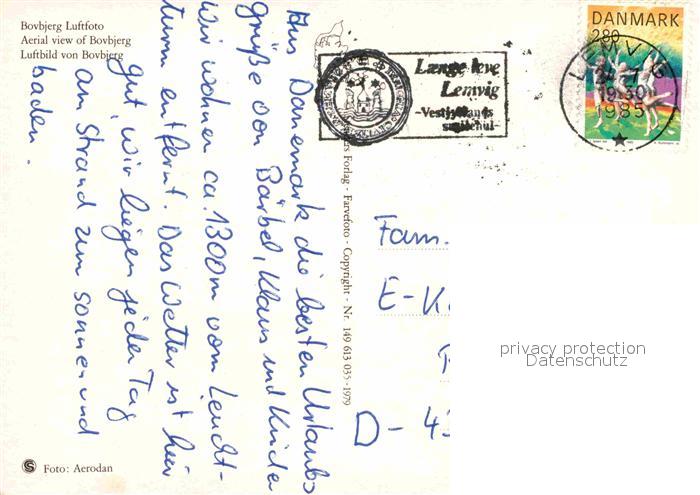 Bovbjerg Luftfoto
Aerial view of Bovbjerg
Luftbild von Bovbjerg
Aus Dänemark die besten Urlaubs
grüße von Bärbel, Klaus und Kinder
Wir wohnen ca. 1300m vom Leucht-
turm entfernt. Das Wetter ist hier
gut, wir liegen jeden Tag
am Strand zum Sonnen und
baden.
Foto: Aerodan
Forlag - Farvefoto - Copyright - Nr. 149 613 035-1979
Længe leve
Lemvig
-Vestjyllands
smilehul-
DANMARK
280
LEMVIG
19.30
1985
Fam.
E-K
D-
privacy protection
Datenschutz